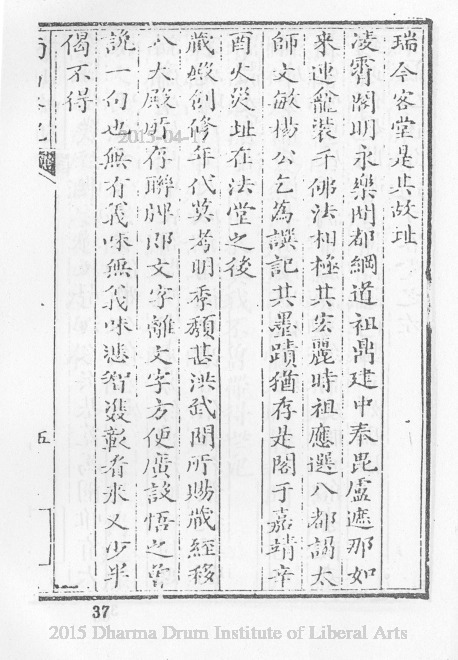 瑞今客堂是其故址
凌霄閣明永樂間都綱道祖鼎建中奉毘盧遮那如
來連龕裝千佛法相極其宏麗時祖應選入都謁太
師文敏楊公乞為譔記其墨蹟猶存是閣于嘉靖辛
酉火災址在法堂之後
藏殿創修年代莫考明季頹甚洪武間所賜藏經移
入大殿所存聯牌即文字離文字方便廣設悟之曾
說一句也無有義味無義味悲智雙彰看來又少半
偈不得
五
37
2015-04-17
2015 Dharma Drum Institute of Liberal Arts